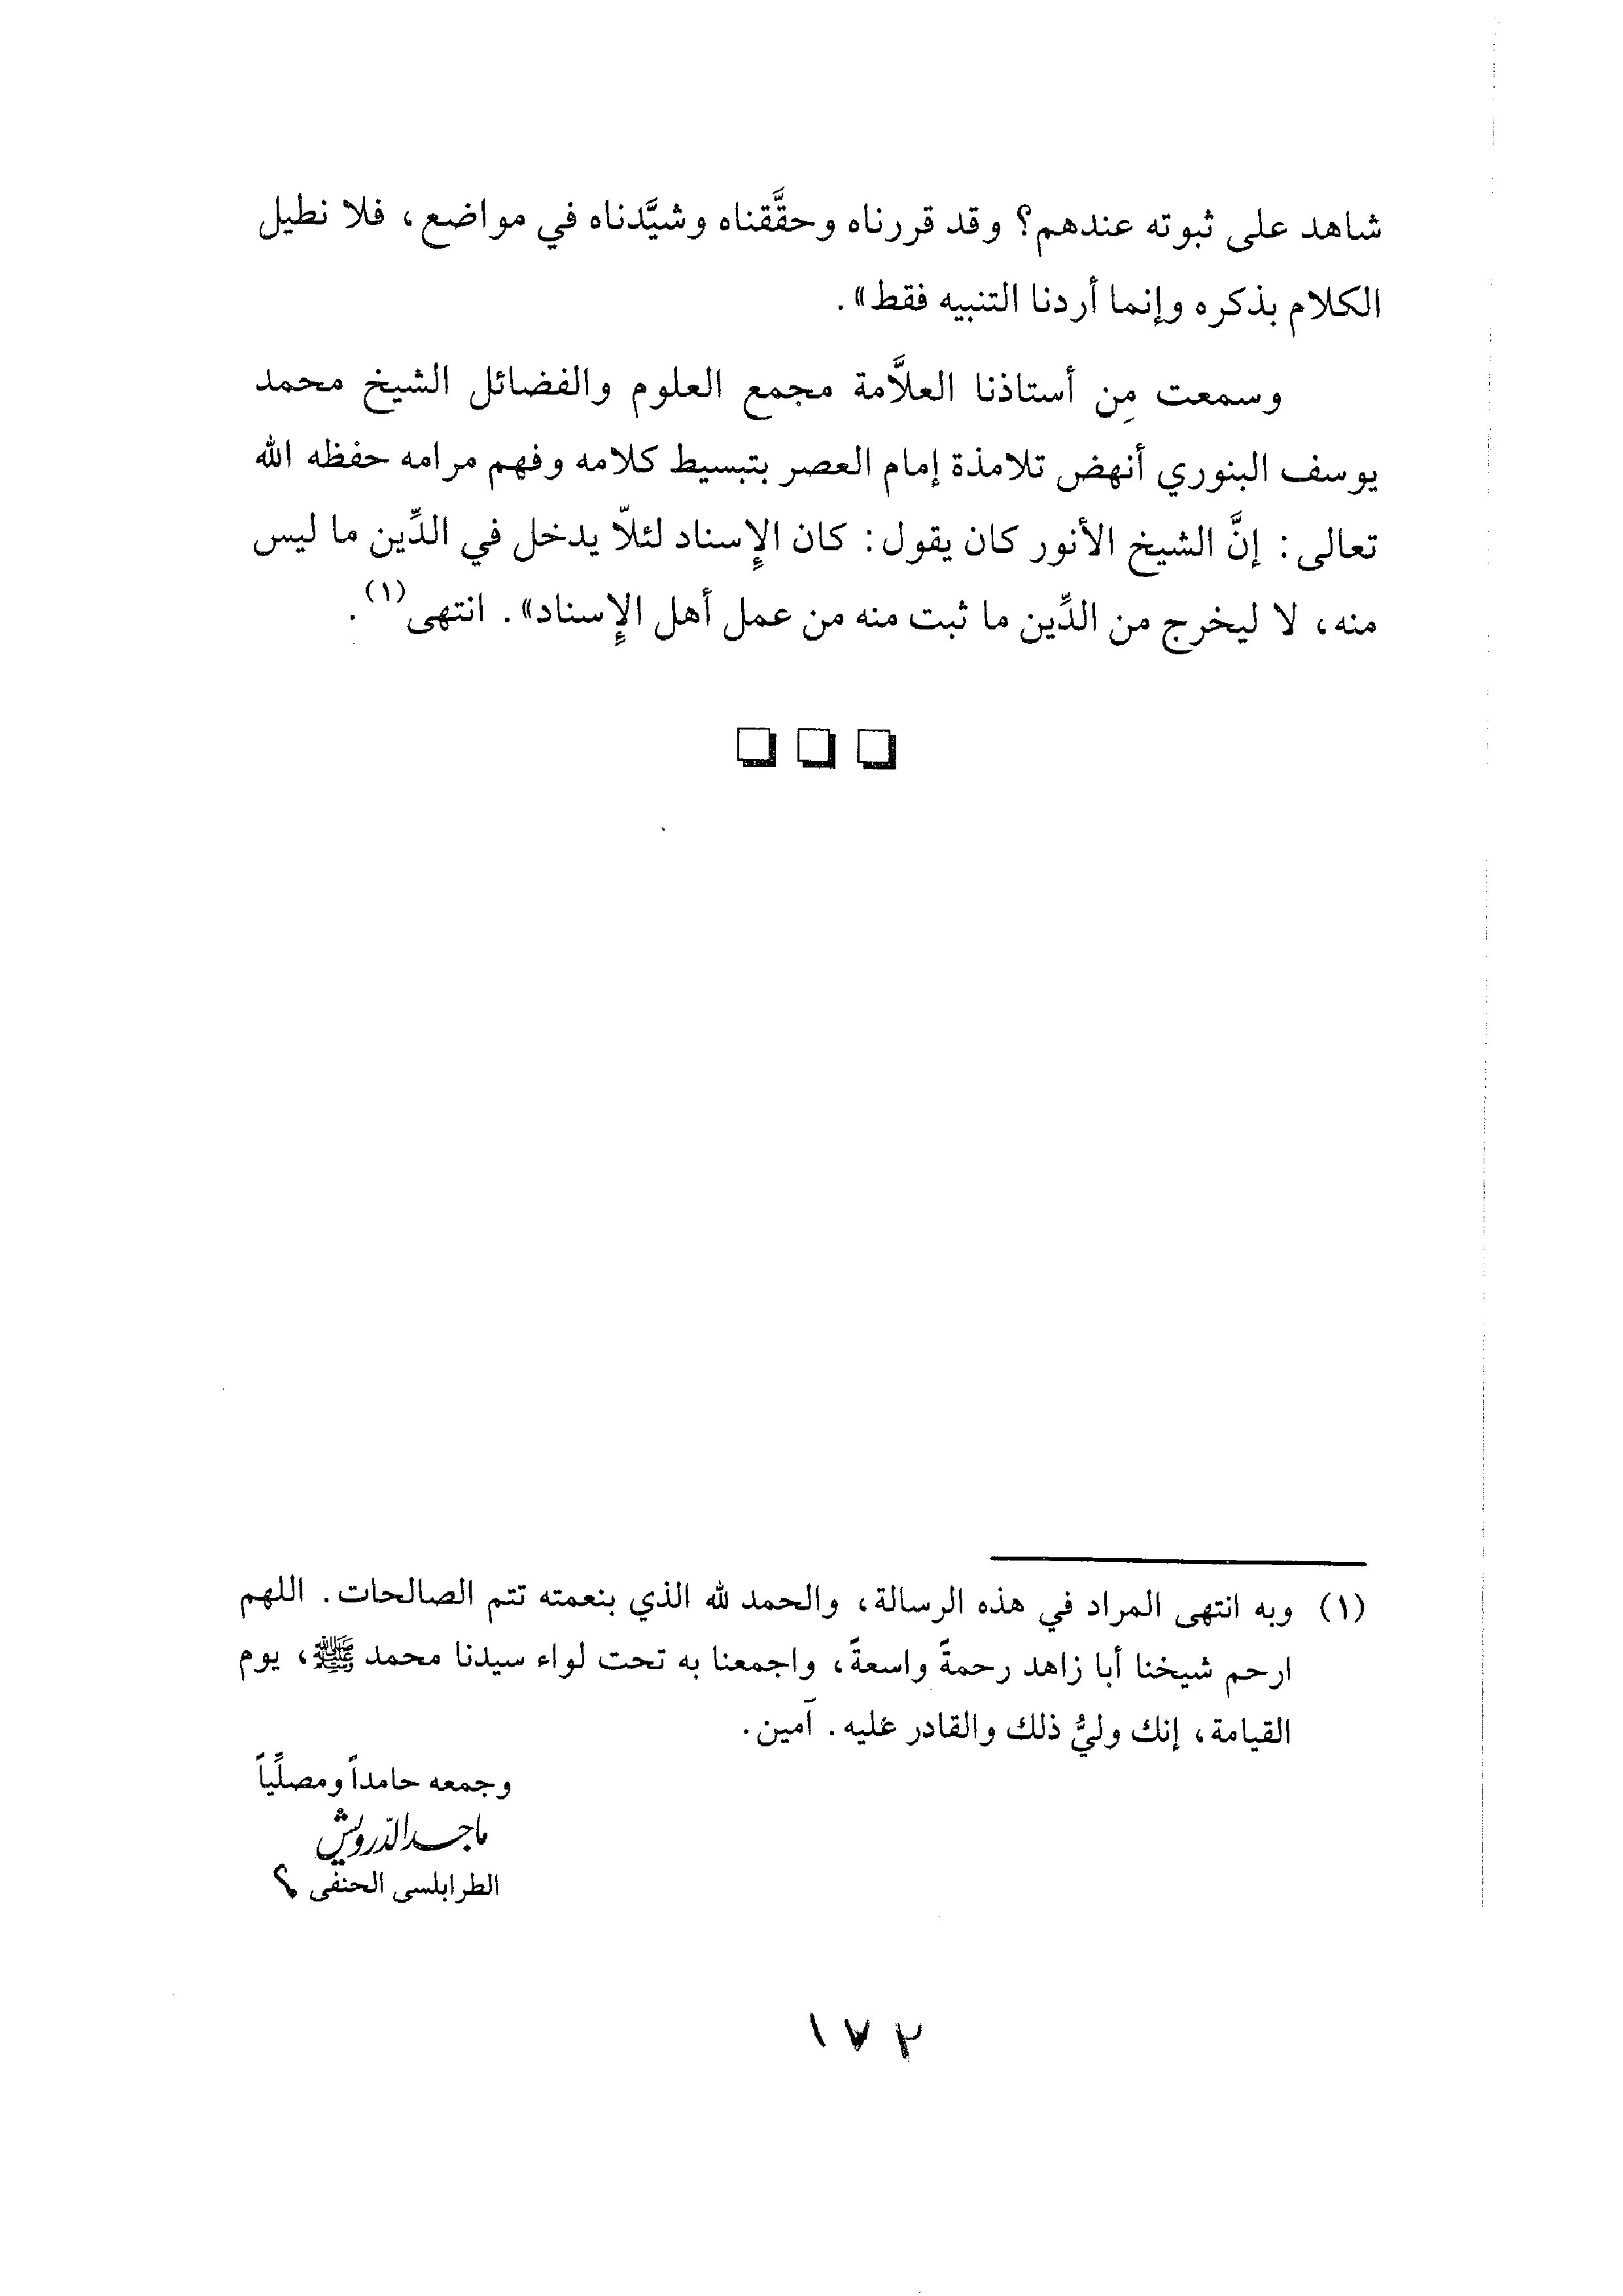 شاهد على ثبوته عندهم؟ وقد قررناه وحقَّقناه وشيَّدناه في مواضع، فلا نطيل
الكلام بذكره وإنما أردنا التنبيه فقط».
وسمعت مِن أستاذنا العلاَّمة مجمع العلوم والفضائل الشيخ محمد
يوسف البنوري أنهض تلامذة إمام العصر بتبسيط كلامه وفهم مرامه حفظه الله
تعالى: إنَّ الشيخ الأنور كان يقول: كان الإِسناد لئلاّ يدخل في الدِّين ما ليس
منه، لا ليخرج من الدِّين ما ثبت منه من عمل أهل الإِسناد». انتهى(١).
(١) وبه انتهى المراد في هذه الرسالة، والحمد لله الذي بنعمته تتم الصالحات. اللهم
ارحم شيخنا أبا زاهد رحمةً واسعةً، واجمعنا به تحت لواء سيدنا محمد ﷺ، يوم
القيامة، إنك وليُّ ذلك والقادر عليه. آمين.
وجمعه حامداً ومصلِّياً
ماجد الدّرويش
الطرابلسي الحنفي
١٧٢